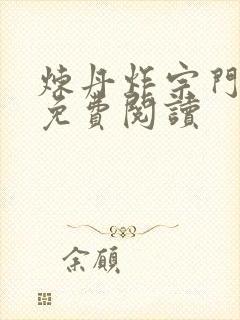 煉丹炸宗門
免費閱讀
余願